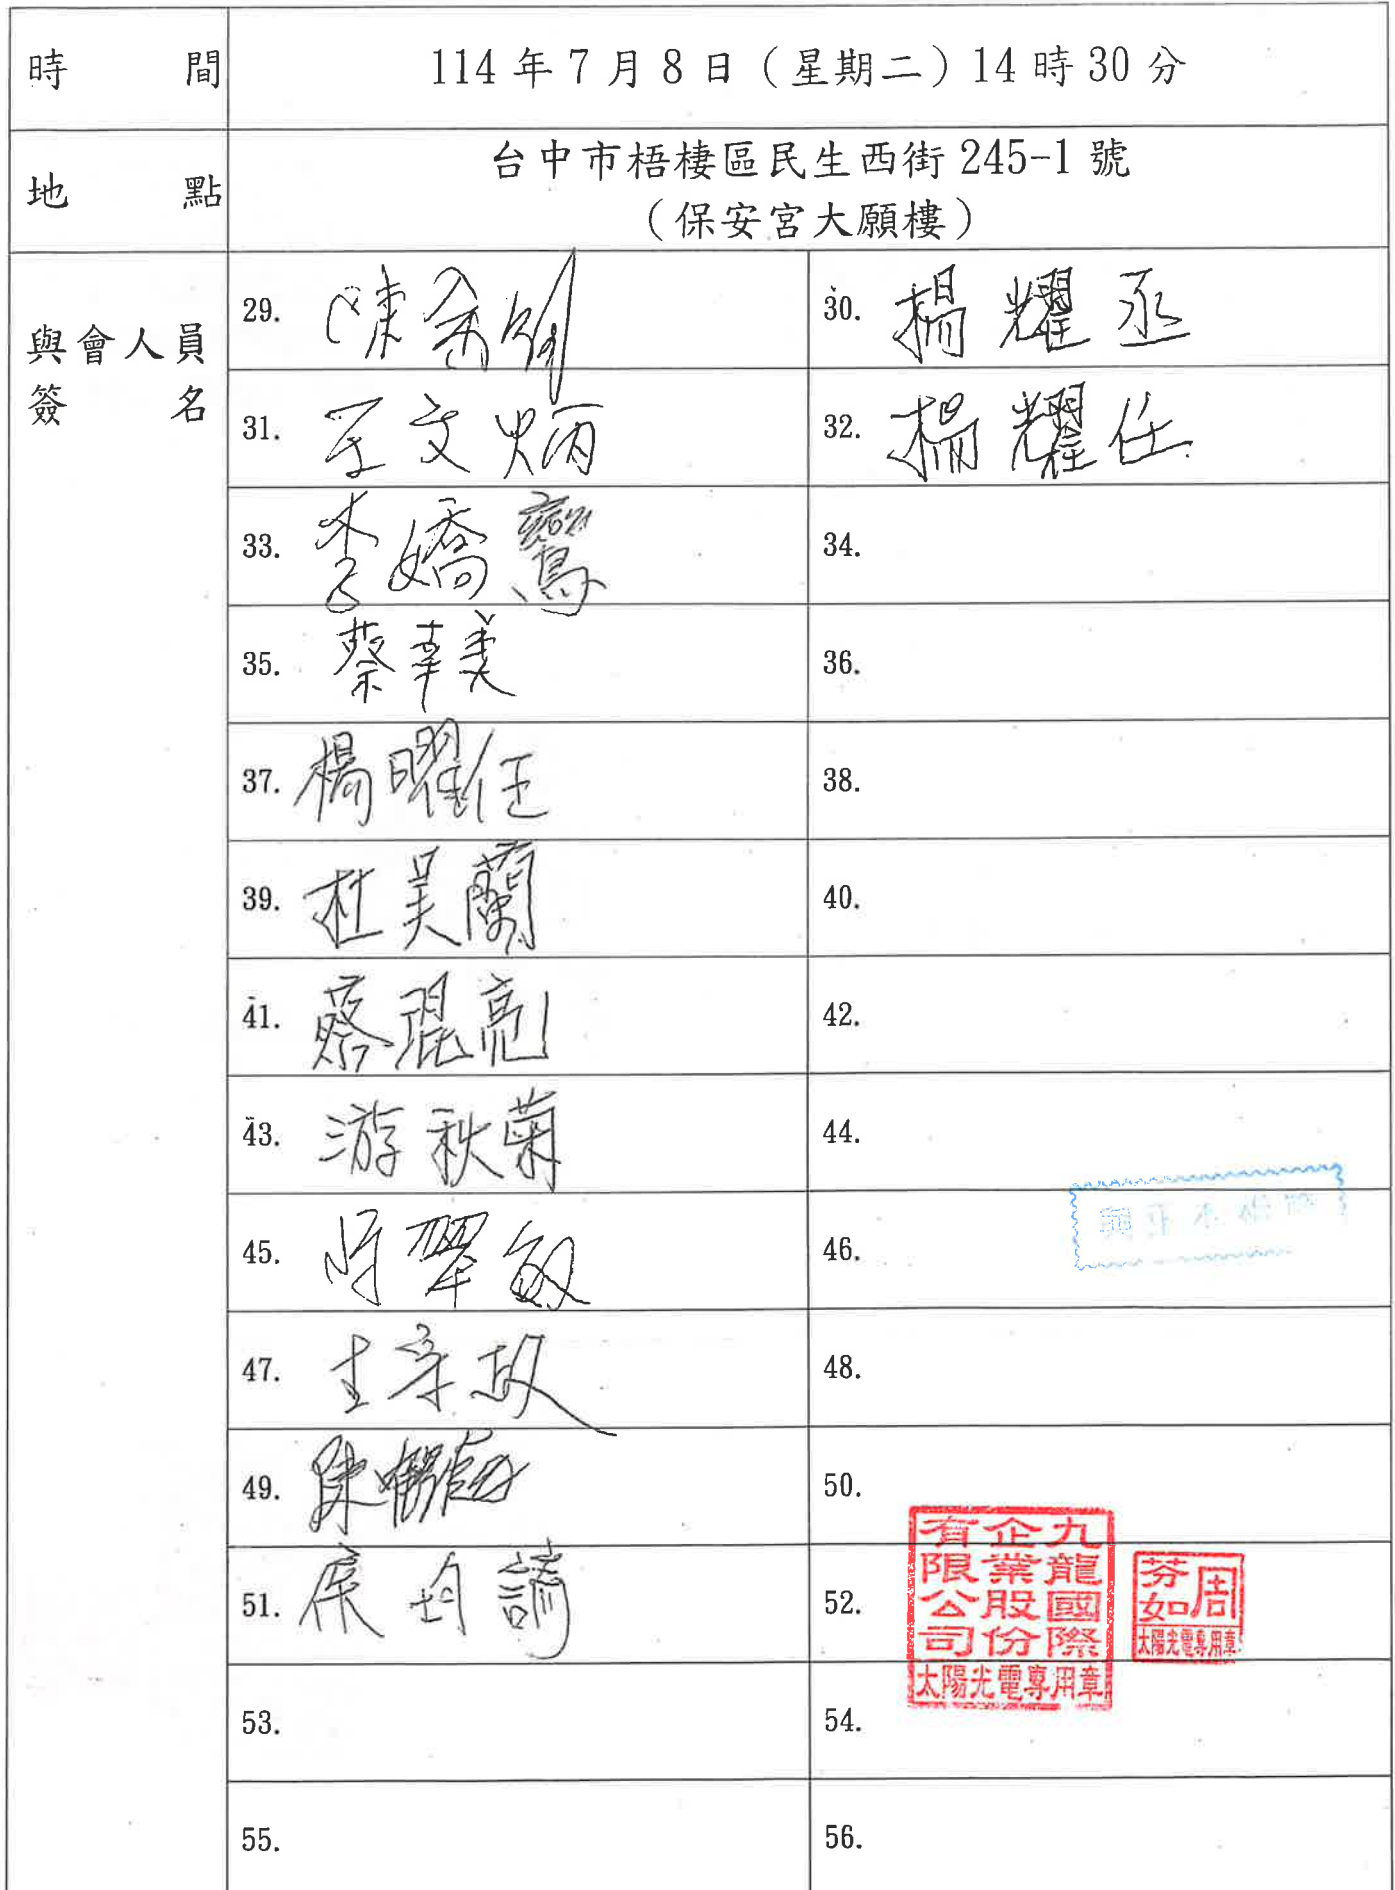 時間
114年7月8日（星期二）14時30分
地點
台中市梧棲區民生西街245-1號
（保安宮大願樓）
與會人員
簽名
29. 陳
30. 楊耀丞
31. 王文炳
32. 楊耀任
33. 李嬌鸞
34.
35. 蔡幸美
36.
37. 楊曜任
38.
39. 杜美蘭
40.
41. 蔡琨亮
42.
43. 游秋菊
44.
45. 翠敏
46.
47. 王宗政
48.
49. 陳
50.
51. 均
52.
53.
54.
55.
56.
九龍國際
企業股份
有限公司
太陽光電專用章
周芬如
太陽光電專用章